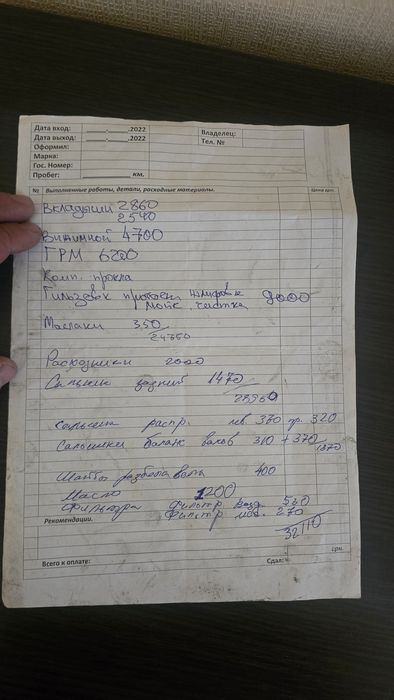 Дата вход: ___.___.2022 Владелец:
Дата выход: ___.___.2022 Тел. №
Оформил:
Марка:
Гос. Номер:
Пробег: ___ км.
№ Выполненные работы, детали, расходные материалы. Цена грн.
Вкладыши 2860
2540
Выжимной 4700
ГРМ 6200
Комп. прокла
Гильзовк шлифовк 9000
чистка
350
24350
Расходники 2000
Сальник задний 1470
28960
распр. лев. 330 пр. 320
Сальники баланс валов 310 + 370
1370
400
Масло 1200
Фильтра Фильтр возд. 520
Фильтр мас. 270
Рекомендации.
32110
грн.
Всего к оплате: Сдал: